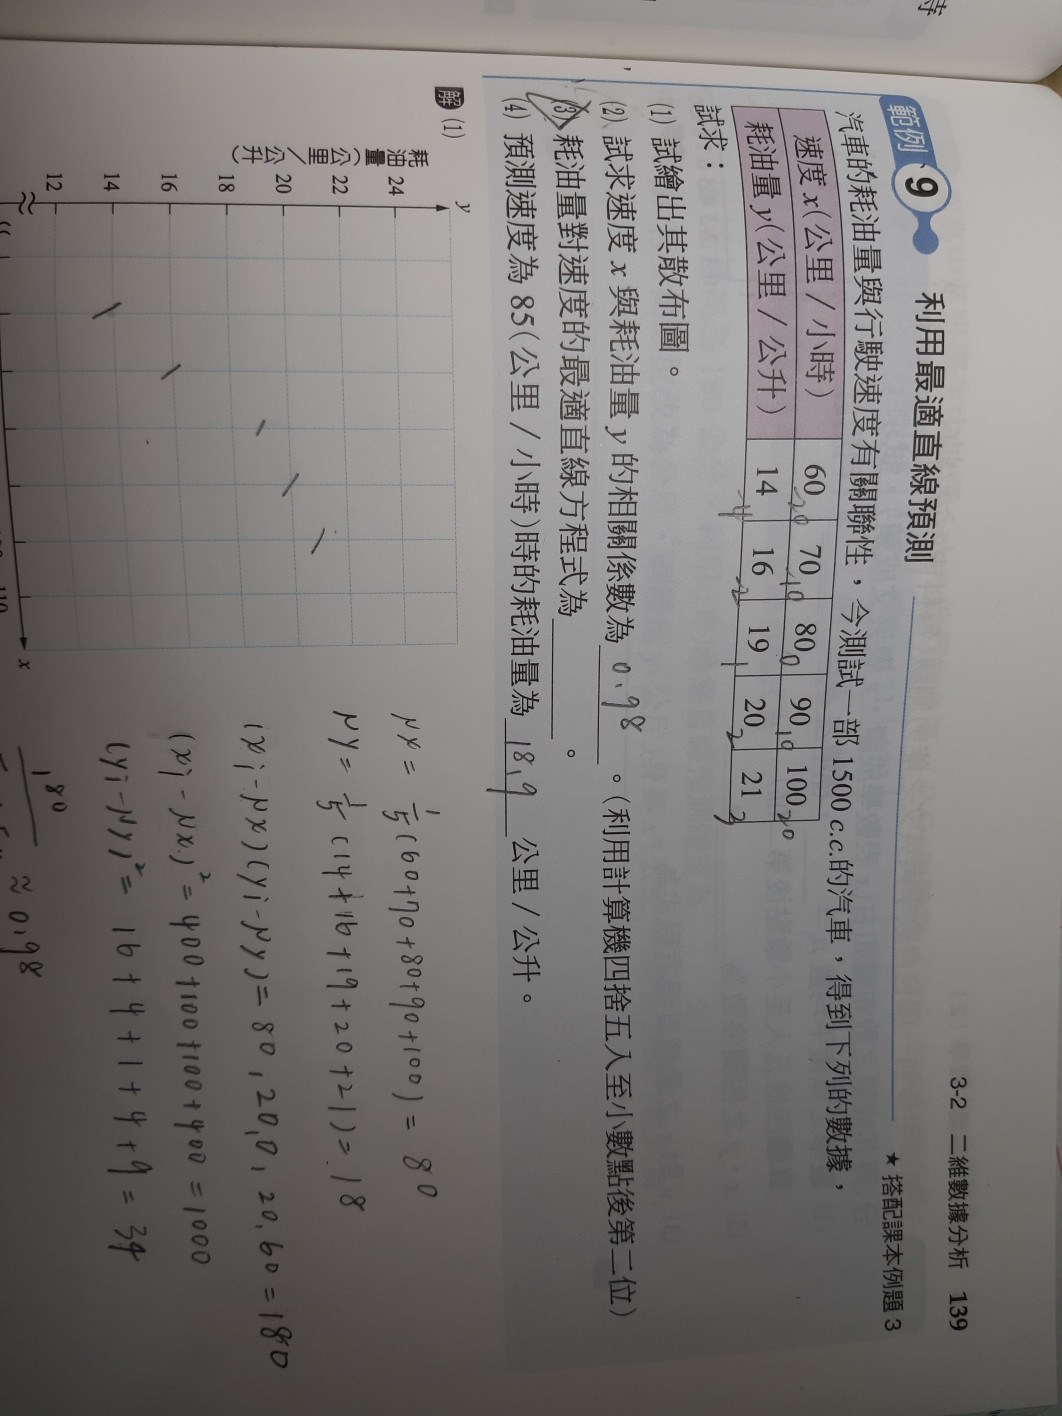 3-2 二維數據分析 139
範例 9 利用最適直線預測
★搭配課本例題 3
汽車的耗油量與行駛速度有關聯性，今測試一部 1500 c.c.的汽車，得到下列的數據，
速度 x(公里/小時) 60 70 80 90 100
-20 -10 0 10 20
耗油量 y(公里/公升) 14 16 19 20 21
-4 -2 1 2 3
試求：
(1) 試繪出其散布圖。
(2) 試求速度 x 與耗油量 y 的相關係數為 0.98 。(利用計算機四捨五入至小數點後第二位)
(3) 耗油量對速度的最適直線方程式為 。
(4) 預測速度為 85(公里/小時)時的耗油量為 18.9 公里/公升。
解 (1)
耗油量(公里/公升)
y
24
22
20
18
16
14
12
110
x
μx = 1/5 (60+70+80+90+100) = 80
μy = 1/5 (14+16+19+20+21) = 18
(xi-μx)(yi-μy) = 80, 20, 0, 20, 60 = 180
(xi-μx)² = 400+100+100+400 = 1000
(yi-μy)² = 16+4+1+4+9 = 34
180
≈ 0.98